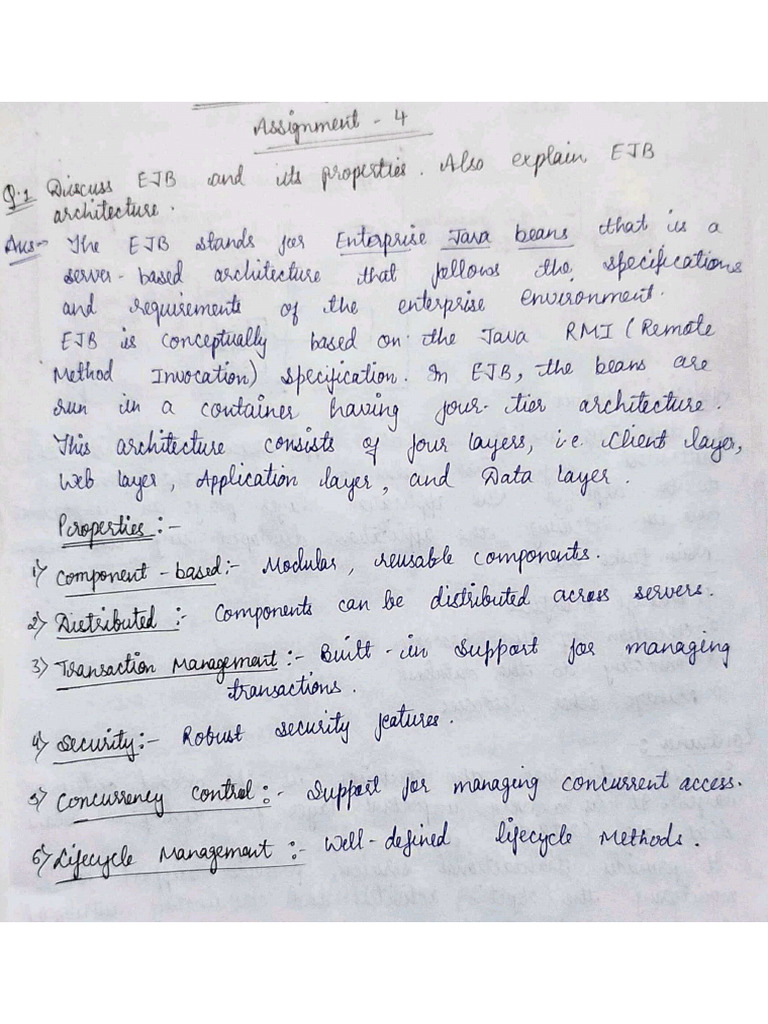 Assignment - 4
Q.1 Discuss EJB and its properties. Also explain EJB
architecture.
Ans:- The EJB stands for Enterprise Java beans that is a
server-based architecture that follows the specifications
and requirements of the enterprise environment.
EJB is conceptually based on the Java RMI (Remote
Method Invocation) specification. In EJB, the beans are
run in a container having four-tier architecture.
This architecture consists of four layers, i.e. Client layer,
Web layer, Application layer, and Data Layer.
Properties:-
1) Component-based:- Modular, reusable components.
2) Distributed:- Components can be distributed across servers.
3) Transaction Management:- Built-in support for managing
transactions.
4) Security:- Robust security features.
5) Concurrency Control:- Support for managing concurrent access.
6) Lifecycle Management:- Well-defined lifecycle methods.